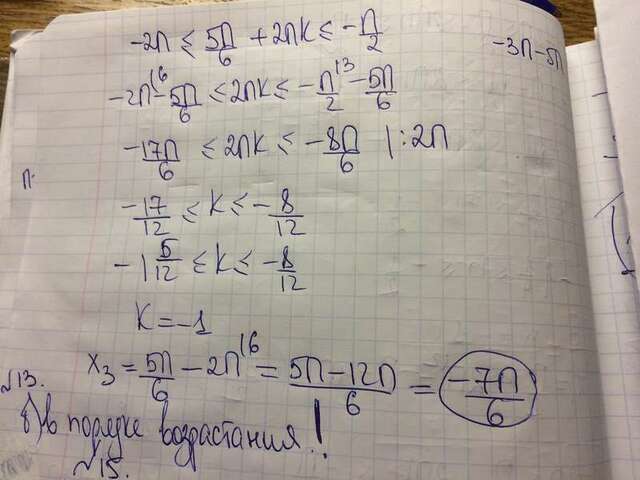 -2π ≤ 5π/6 + 2πk ≤ -π/2
-2π^{\6} - 5π/6 ≤ 2πk ≤ -π/2^{\3} - 5π/6
-3π-5π
-17π/6 ≤ 2πk ≤ -8π/6 | :2π
-17/12 ≤ k ≤ -8/12
-1 5/12 ≤ k ≤ -8/12
k = -1
x₃ = 5π/6 - 2π^{\6} = 5π-12π/6 = -7π/6
№13.
в порядке возрастания!
№15.